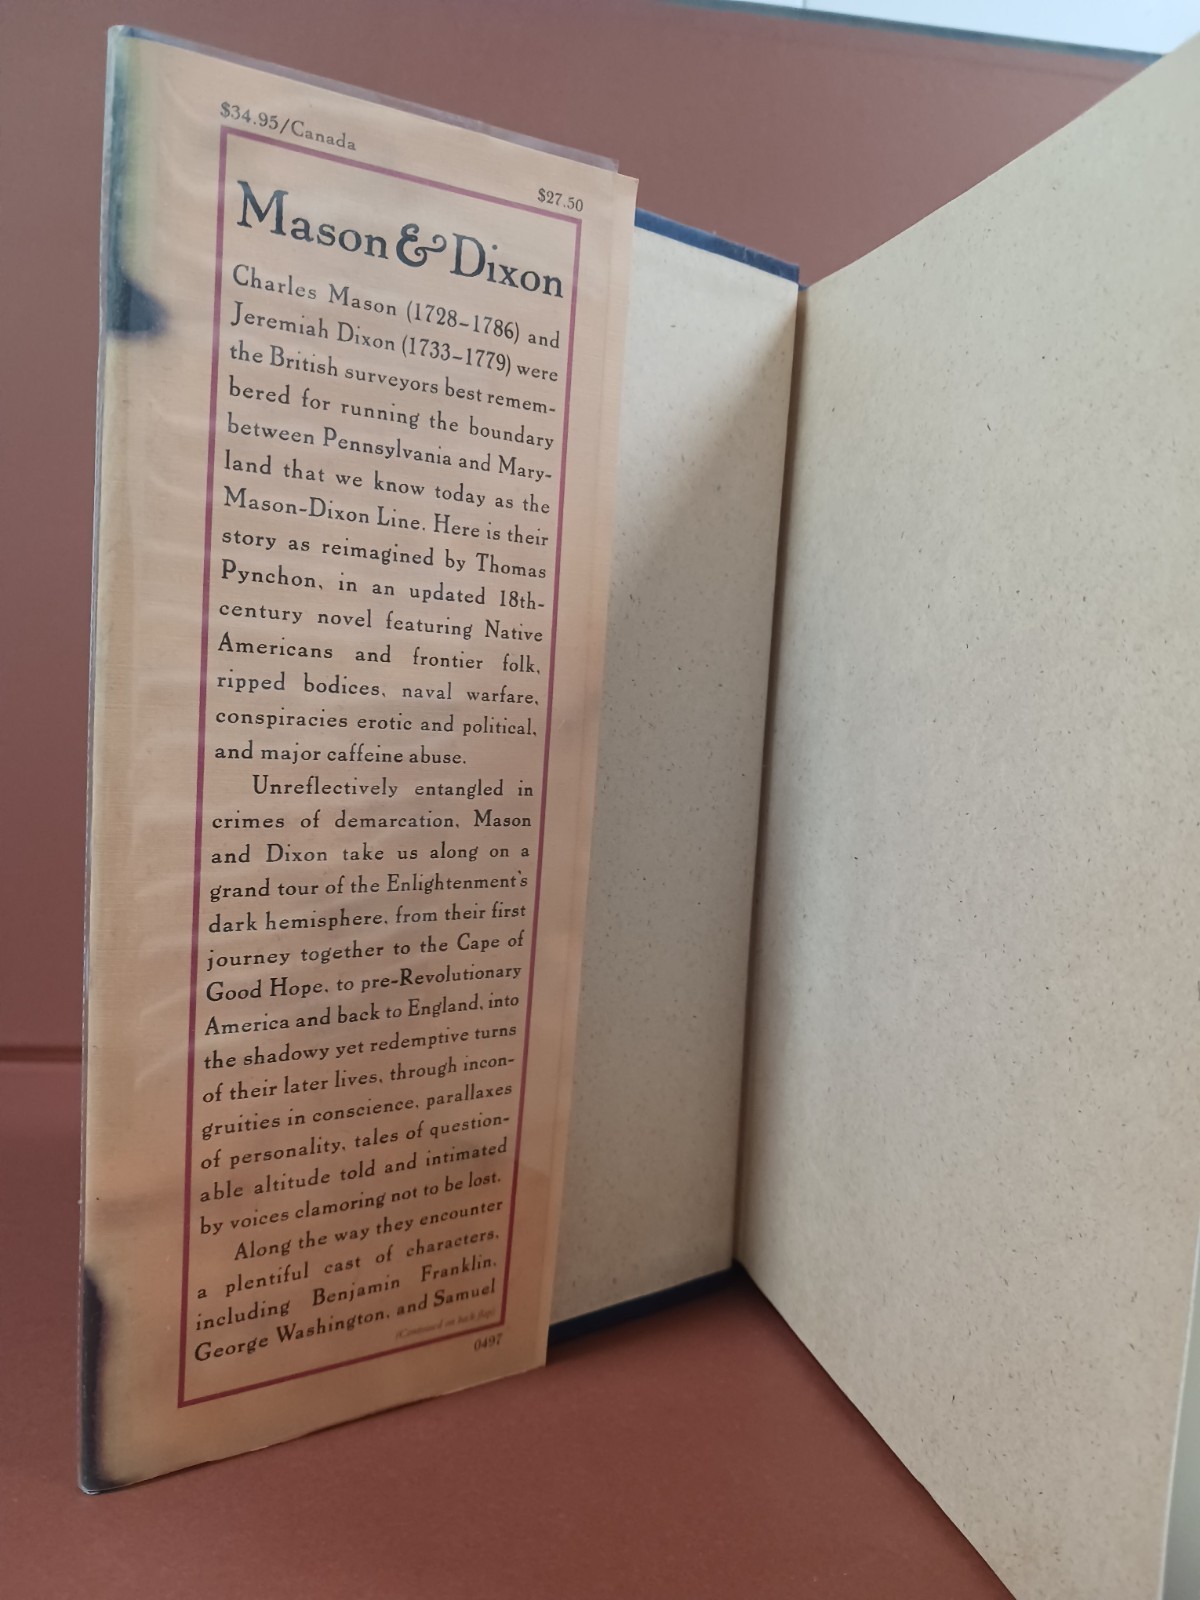 $34.95/Canada
$27.50
Mason & Dixon
Charles Mason (1728–1786) and
Jeremiah Dixon (1733–1779) were
the British surveyors best remem-
bered for running the boundary
between Pennsylvania and Mary-
land that we know today as the
Mason-Dixon Line. Here is their
story as reimagined by Thomas
Pynchon, in an updated 18th-
century novel featuring Native
Americans and frontier folk,
ripped bodices, naval warfare,
conspiracies erotic and political,
and major caffeine abuse.
Unreflectively entangled in
crimes of demarcation, Mason
and Dixon take us along on a
grand tour of the Enlightenment's
dark hemisphere, from their first
journey together to the Cape of
Good Hope, to pre-Revolutionary
America and back to England, into
the shadowy yet redemptive turns
of their later lives, through incon-
gruities in conscience, parallaxes
of personality, tales of question-
able altitude told and intimated
by voices clamoring not to be lost.
Along the way they encounter
a plentiful cast of characters,
including Benjamin Franklin,
George Washington, and Samuel
(Continued on back flap)
0497